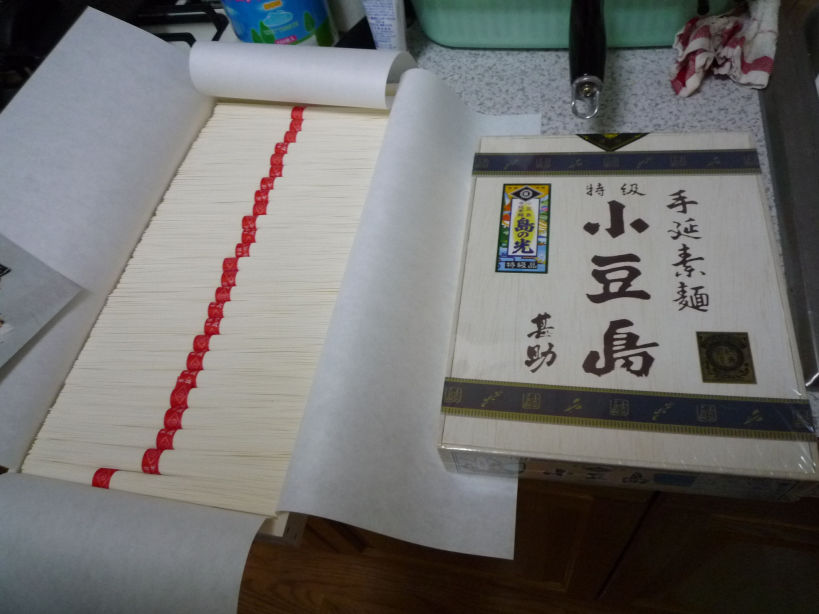 手延素麺
特級
小豆島
甚助
島の光
特級品